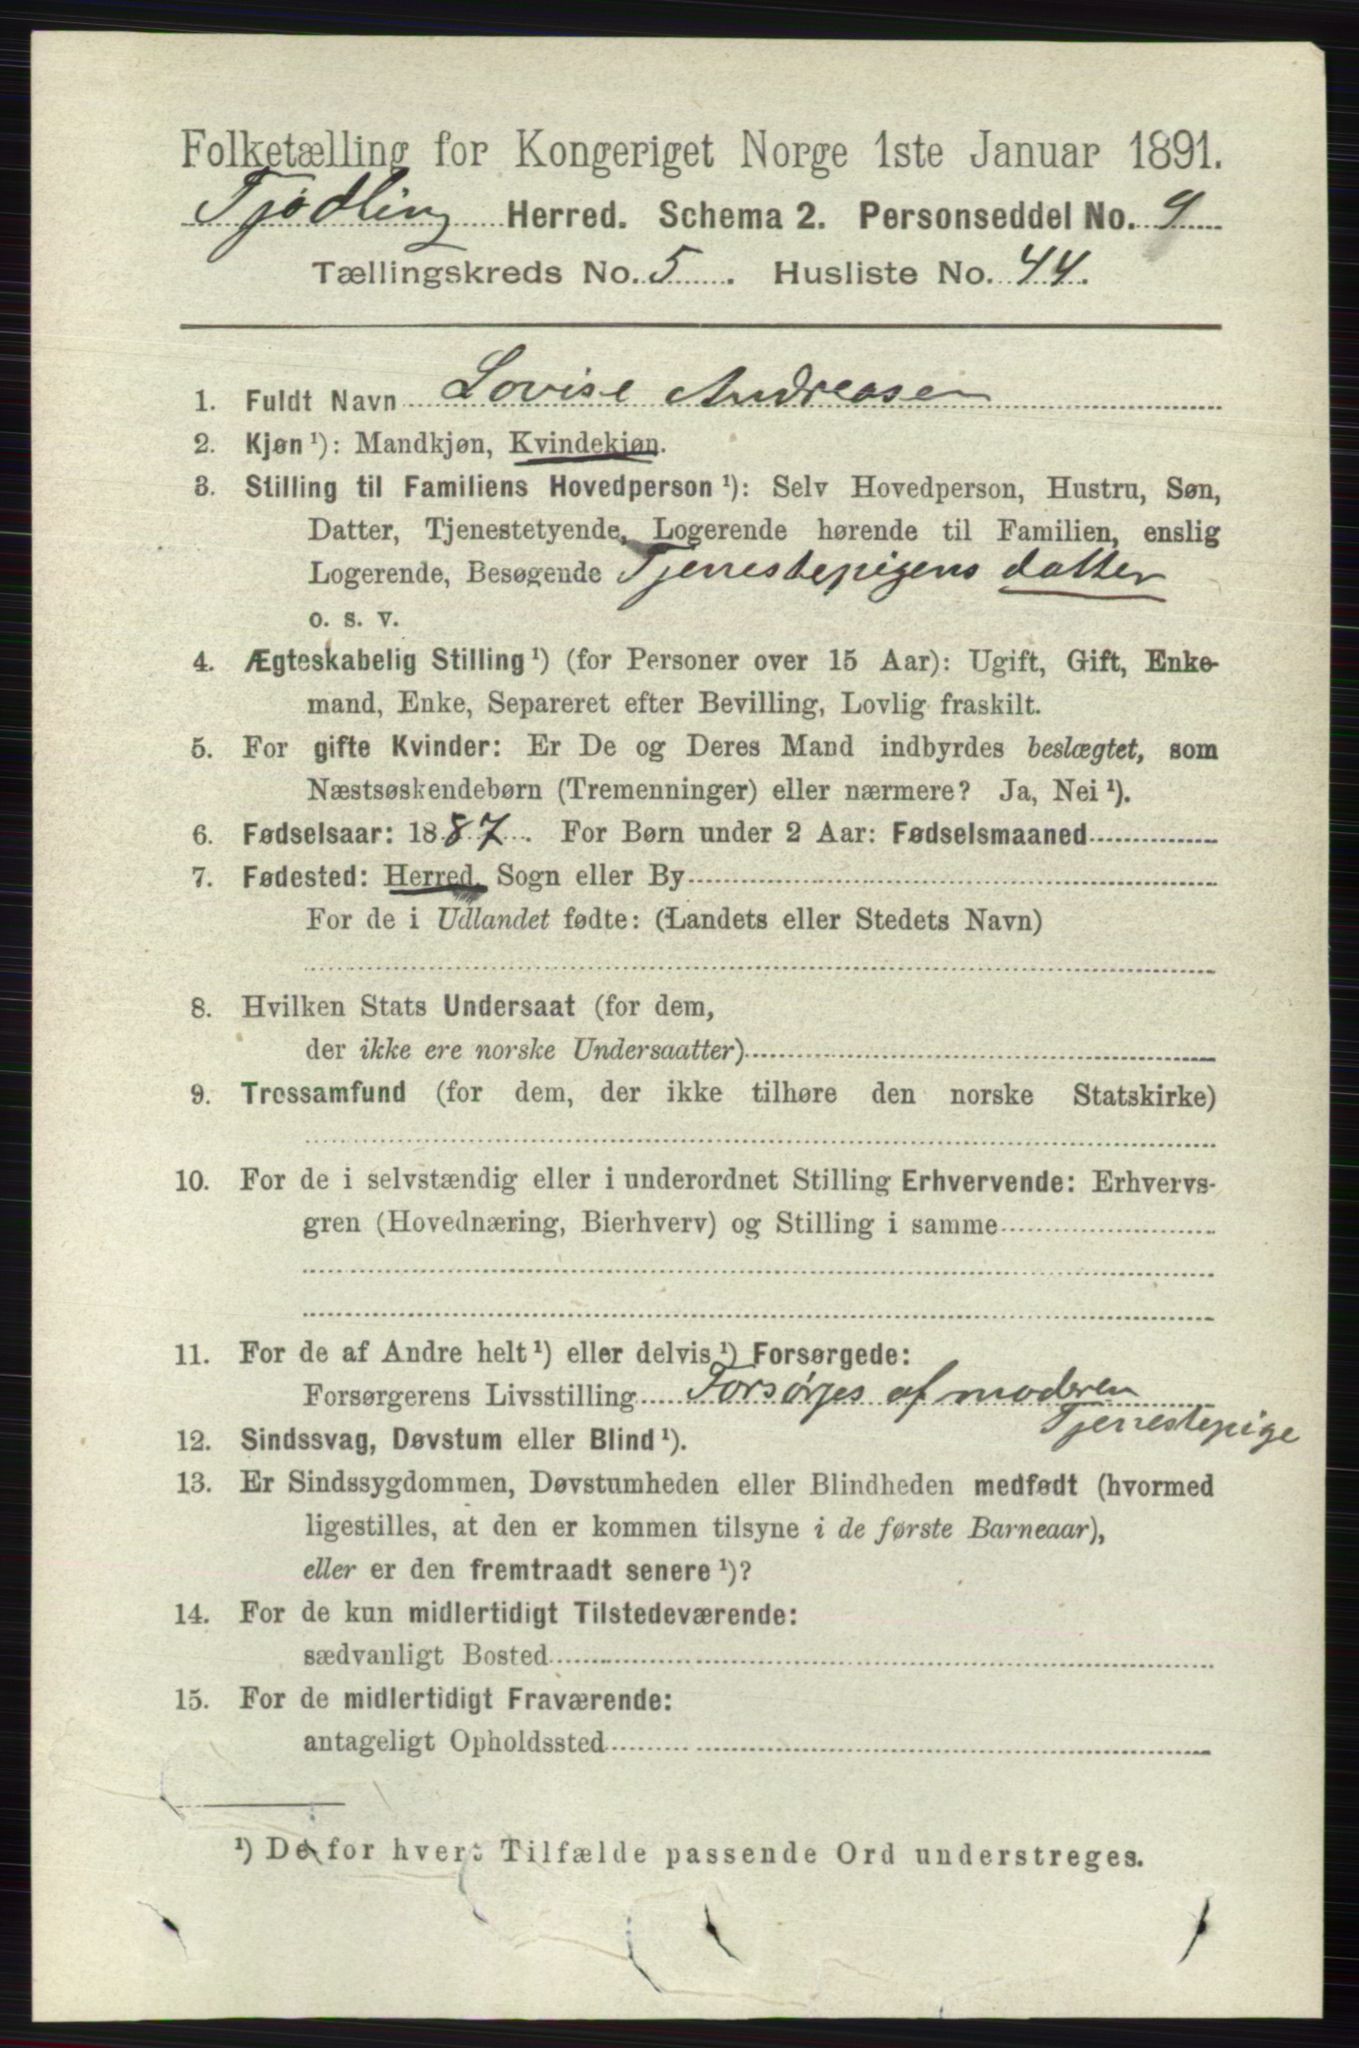 Folketælling for Kongeriget Norge 1ste Januar 1891.
Tjødling Herred. Schema 2. Personseddel No. 9
Tællingskreds No. 5. Husliste No. 44.
1. Fuldt Navn Lovise Andreasen
2. Kjøn ¹): Mandkjøn, Kvindekjøn.
3. Stilling til Familiens Hovedperson ¹): Selv Hovedperson, Hustru, Søn,
Datter, Tjenestetyende, Logerende hørende til Familien, enslig
Logerende, Besøgende Tjenestepigens datter
o. s. v.
4. Ægteskabelig Stilling ¹) (for Personer over 15 Aar): Ugift, Gift, Enke-
mand, Enke, Separeret efter Bevilling, Lovlig fraskilt.
5. For gifte Kvinder: Er De og Deres Mand indbyrdes beslægtet, som
Næstsøskendebørn (Tremenninger) eller nærmere? Ja, Nei ¹).
6. Fødselsaar: 1887. For Børn under 2 Aar: Fødselsmaaned
7. Fødested: Herred, Sogn eller By
For de i Udlandet fødte: (Landets eller Stedets Navn)
8. Hvilken Stats Undersaat (for dem,
der ikke ere norske Undersaatter)
9. Trossamfund (for dem, der ikke tilhøre den norske Statskirke)
10. For de i selvstændig eller i underordnet Stilling Erhvervende: Erhvervs-
gren (Hovednæring, Bierhverv) og Stilling i samme
11. For de af Andre helt ¹) eller delvis ¹) Forsørgede:
Forsørgerens Livsstilling Forsørges af moderen
Tjenestepige
12. Sindssvag, Døvstum eller Blind ¹).
13. Er Sindssygdommen, Døvstumheden eller Blindheden medfødt (hvormed
ligestilles, at den er kommen tilsyne i de første Barneaar),
eller er den fremtraadt senere ¹)?
14. For de kun midlertidigt Tilstedeværende:
sædvanligt Bosted
15. For de midlertidigt Fraværende:
antageligt Opholdssted
¹) De for hvert Tilfælde passende Ord understreges.